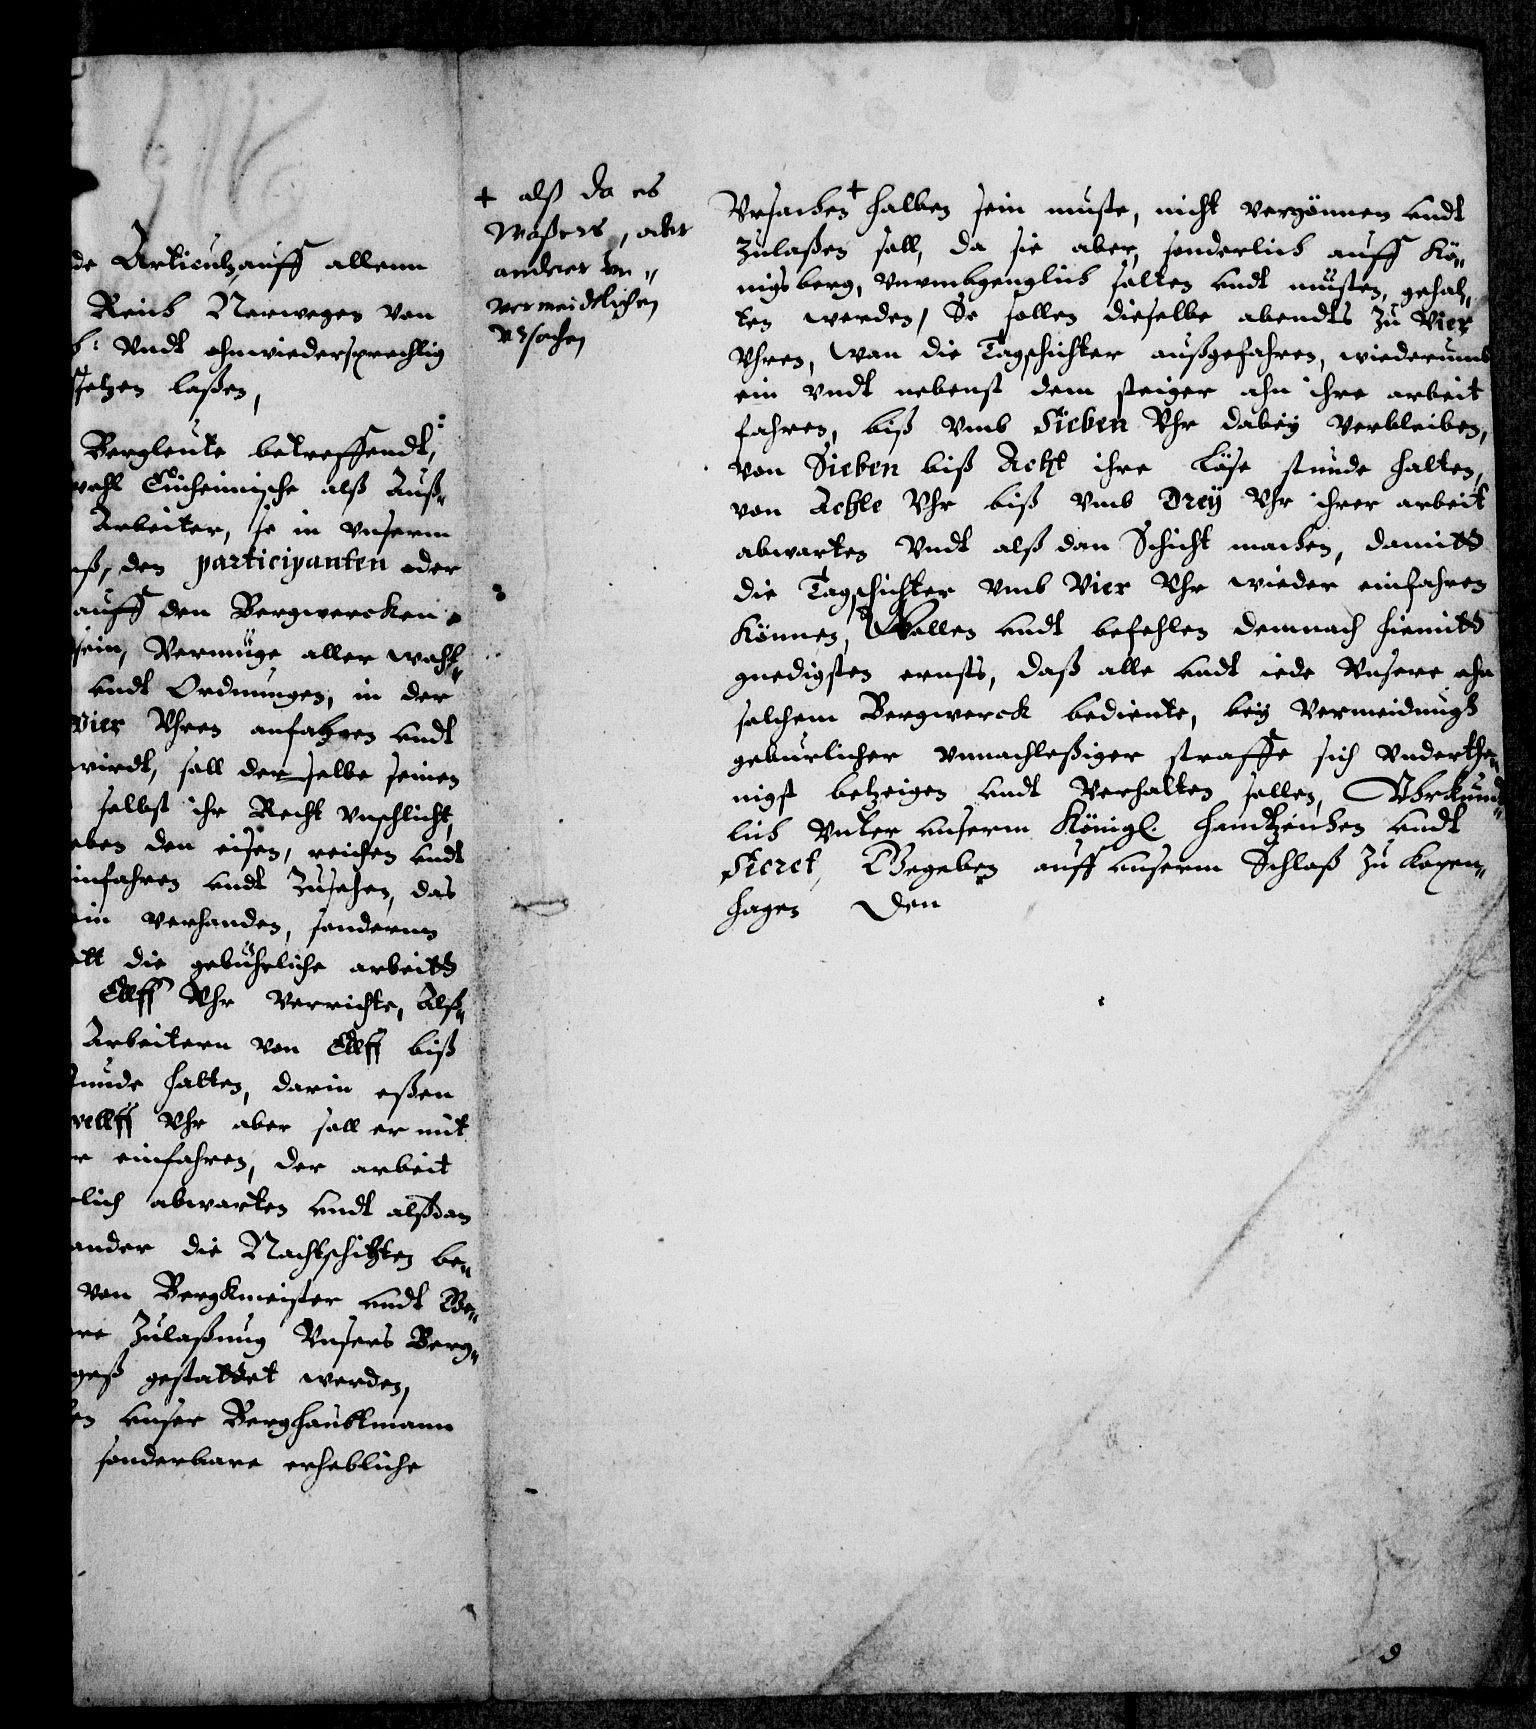 de Articul, auff allenn
Reich Norwegen von
Vndt ohnwiedersprechlig
setzen laßen,
Bergleute betreffendt,
wohl Einheimische alß Auß„
Arbeiter, so in vnserm
den participanten oder
auff den Bergwercken
sein, Vermüge aller wohl„
vndt Ordnungen, in der
vier Vhren anfahren vndt
wirdt, soll derselbe seinen
selbst ihr Recht vnschlicht,
eben den eisen, reichen vndt
einfahren vndt Zusehen, das
ein verhanden, sondernn
die gebührliche arbeitt
Ellff Vhr verrichte, Alß„
Arbeitern von Ellff biß
stunde halten, darin eßen
Vhr aber soll er mit
einfahren, der arbeit
abwarten vndt alßdan
ander die Nachtschichten be„
von Bergkmeister vndt Ge„
Zulaßung Vnsers Berg„
gestattet werden,
vnser Berghaubtmann
sonderbare erhebliche
+ alß da es
Waßers, oder
anderer vn„
vermeidtlichen
Vrsachen
Vrsachen + halben sein muste, nicht vergönnen vndt
Zulaßen soll, da sie aber, sonderlich auff Kö„
nigsberg, vnumbgenglich solten vndt müsten, gehal„
ten werden, So sollen dieselbe abendts Zu Vier
Vhren, Wan die Tagschichter außgefahren, wiederumb
ein vndt nebenst dem steiger ahn ihre arbeit
fahren, biß Vmb Sieben Vhr dabey verbleiben,
von Sieben biß Acht ihre Löse stunde halten,
von Achte Vhr biß vmb Drey Vhr ihrer arbeit
abwarten Vndt alß dan Schicht machen, damitt
die Tagschichter vmb Vier Vhr wieder einfahren
Können, Wollen vndt befehlen demnach hiemitt
gnedigsten ernsts, daß alle vndt iede Vnsere ahn
solchem Bergwerck bediente, bey Vermeidungh
geburlicher vnnachleßiger straffe sich vnderthe„
nigst betzeigen vndt Verhalten sollen, Vhrkund„
lich Vnter vnserm Königl. Handtzeichen vndt
Secret, Gegeben auff vnserm Schloß Zu Copen„
hagen Den